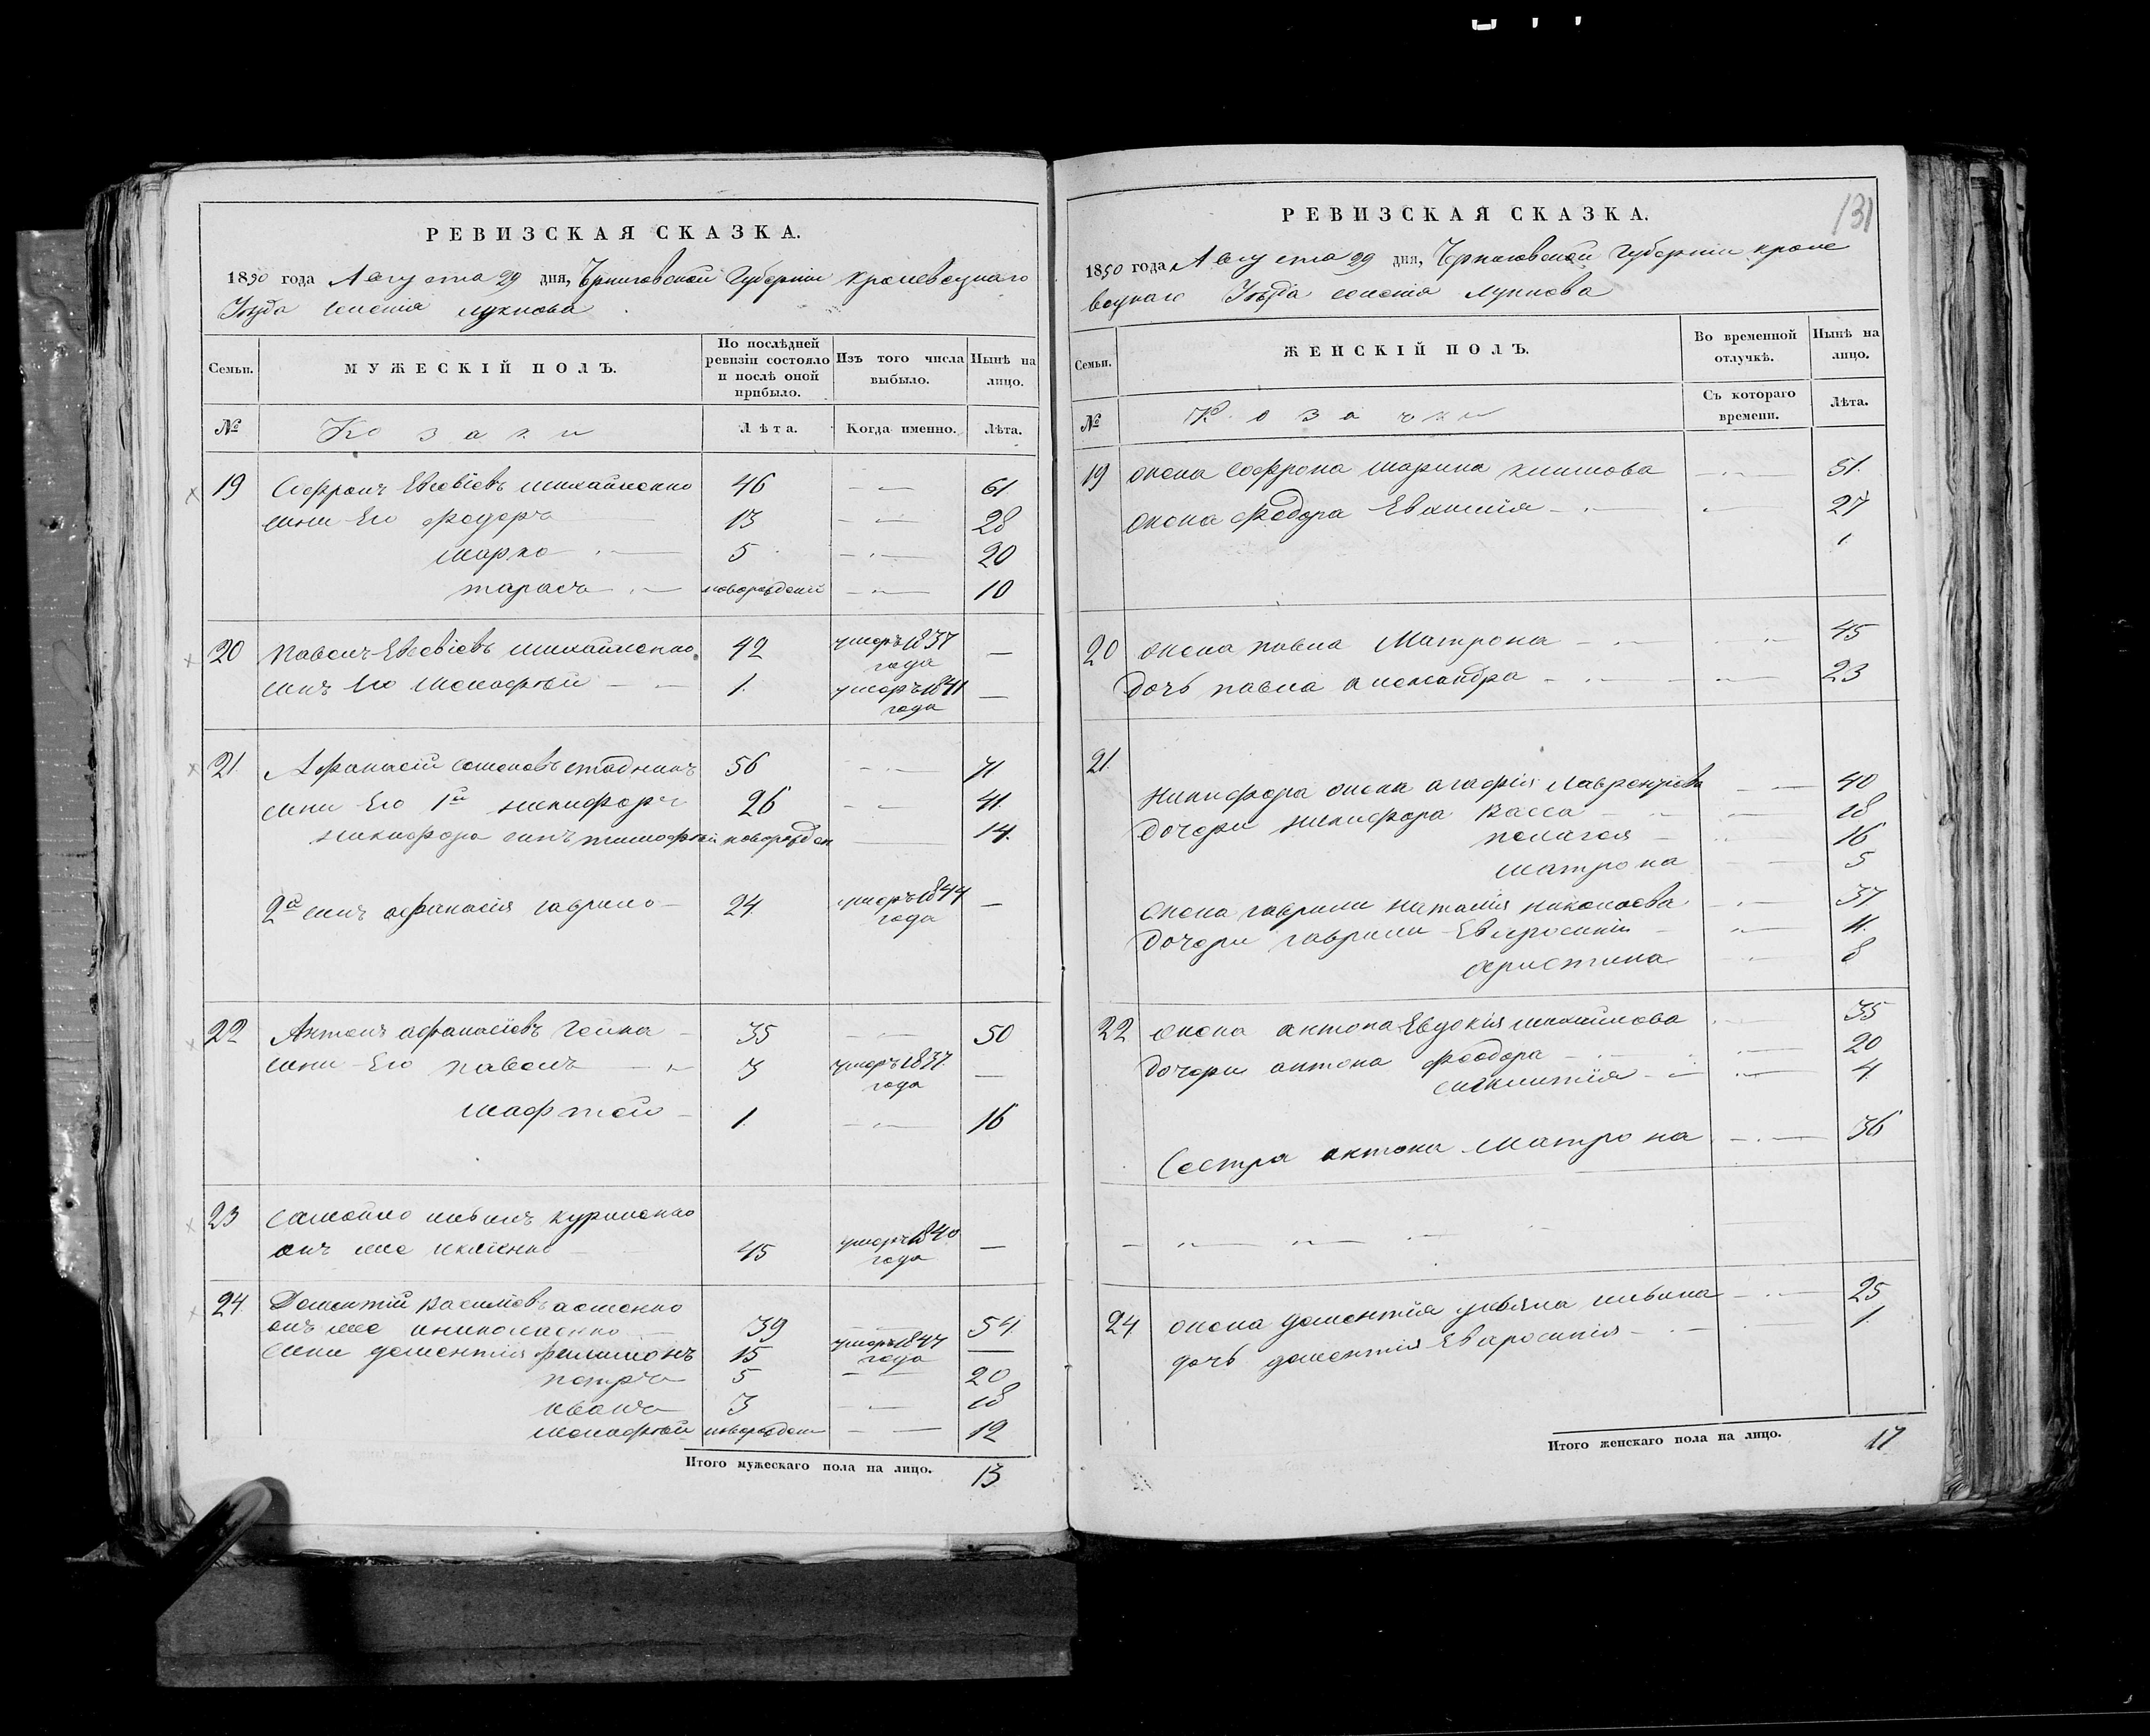 РЕВИЗСКАЯ СКАЗКА.
1850 года Августа 29 дня, Черниговской Губерніи Кролевецкаго
Уезда селенія Лукнова
Семьи.
МУЖЕСКІЙ ПОЛЪ.
По послѣдней ревизіи состояло и послѣ оной прибыло.
Изъ того числа выбыло.
Нынѣ на лицо.
№
Козаки
Лѣта.
Когда именно.
Лѣта.
19 Софронъ Евсевіевъ Михайленко 46 61
сини Его Федоръ 13 28
Марко 5 20
тарасъ новорожденій 10
20 Павелъ Евсевіевъ Михайленко 42 умеръ 1837 года —
синъ Его Мелафтей 1 умеръ 1841 года —
21 Афанасій Семеновъ Стадникъ 56 71
сини Его 1й никифоръ 26 41
никифора синъ тимофей новорожден 14
2й синъ афанасія гаврило 24 умеръ 1844 года —
22 Антонъ афанасіевъ Гейка 35 50
сини Его павелъ 3 умеръ 1837 года —
Мафтей 1 16
23 Самойло
онъ же 45 умеръ 1840 года —
24 Дементій
онъ же 39 54
сини дементія филимонъ 15 умеръ 1847 года —
петръ 5 20
иванъ 3 18
Мелафтей новорожден 12
Итого мужескаго пола на лицо. 13
131
РЕВИЗСКАЯ СКАЗКА.
1850 года Августа 29 дня, Черниговской Губерніи Кроле
вецкаго Уезда селенія Лукнова
Семьи.
ЖЕНСКІЙ ПОЛЪ.
Во временной отлучкѣ.
Нынѣ на лицо.
№
Козачки
Съ котораго времени.
Лѣта.
19 жена Софрона Марина климова 51
жена Федора 27
20 жена павла Матрона 45
Дочь павла александра 23
21 Никифора жена агафія Лаврентіева 40
Дочери никифора Васса 18
пелагея 16
Матрона 5
жена гаврили наталія николаева 37
Дочери гаврили Евфросинія 11
христина 8
22 жена антона Евдокія михайлова 35
Дочери антона феодора 20
4
Сестра антона Матрона 36
24 жена дементія улияна 25
дочь дементія Евфросинія 1
Итого женскаго пола на лицо. 17